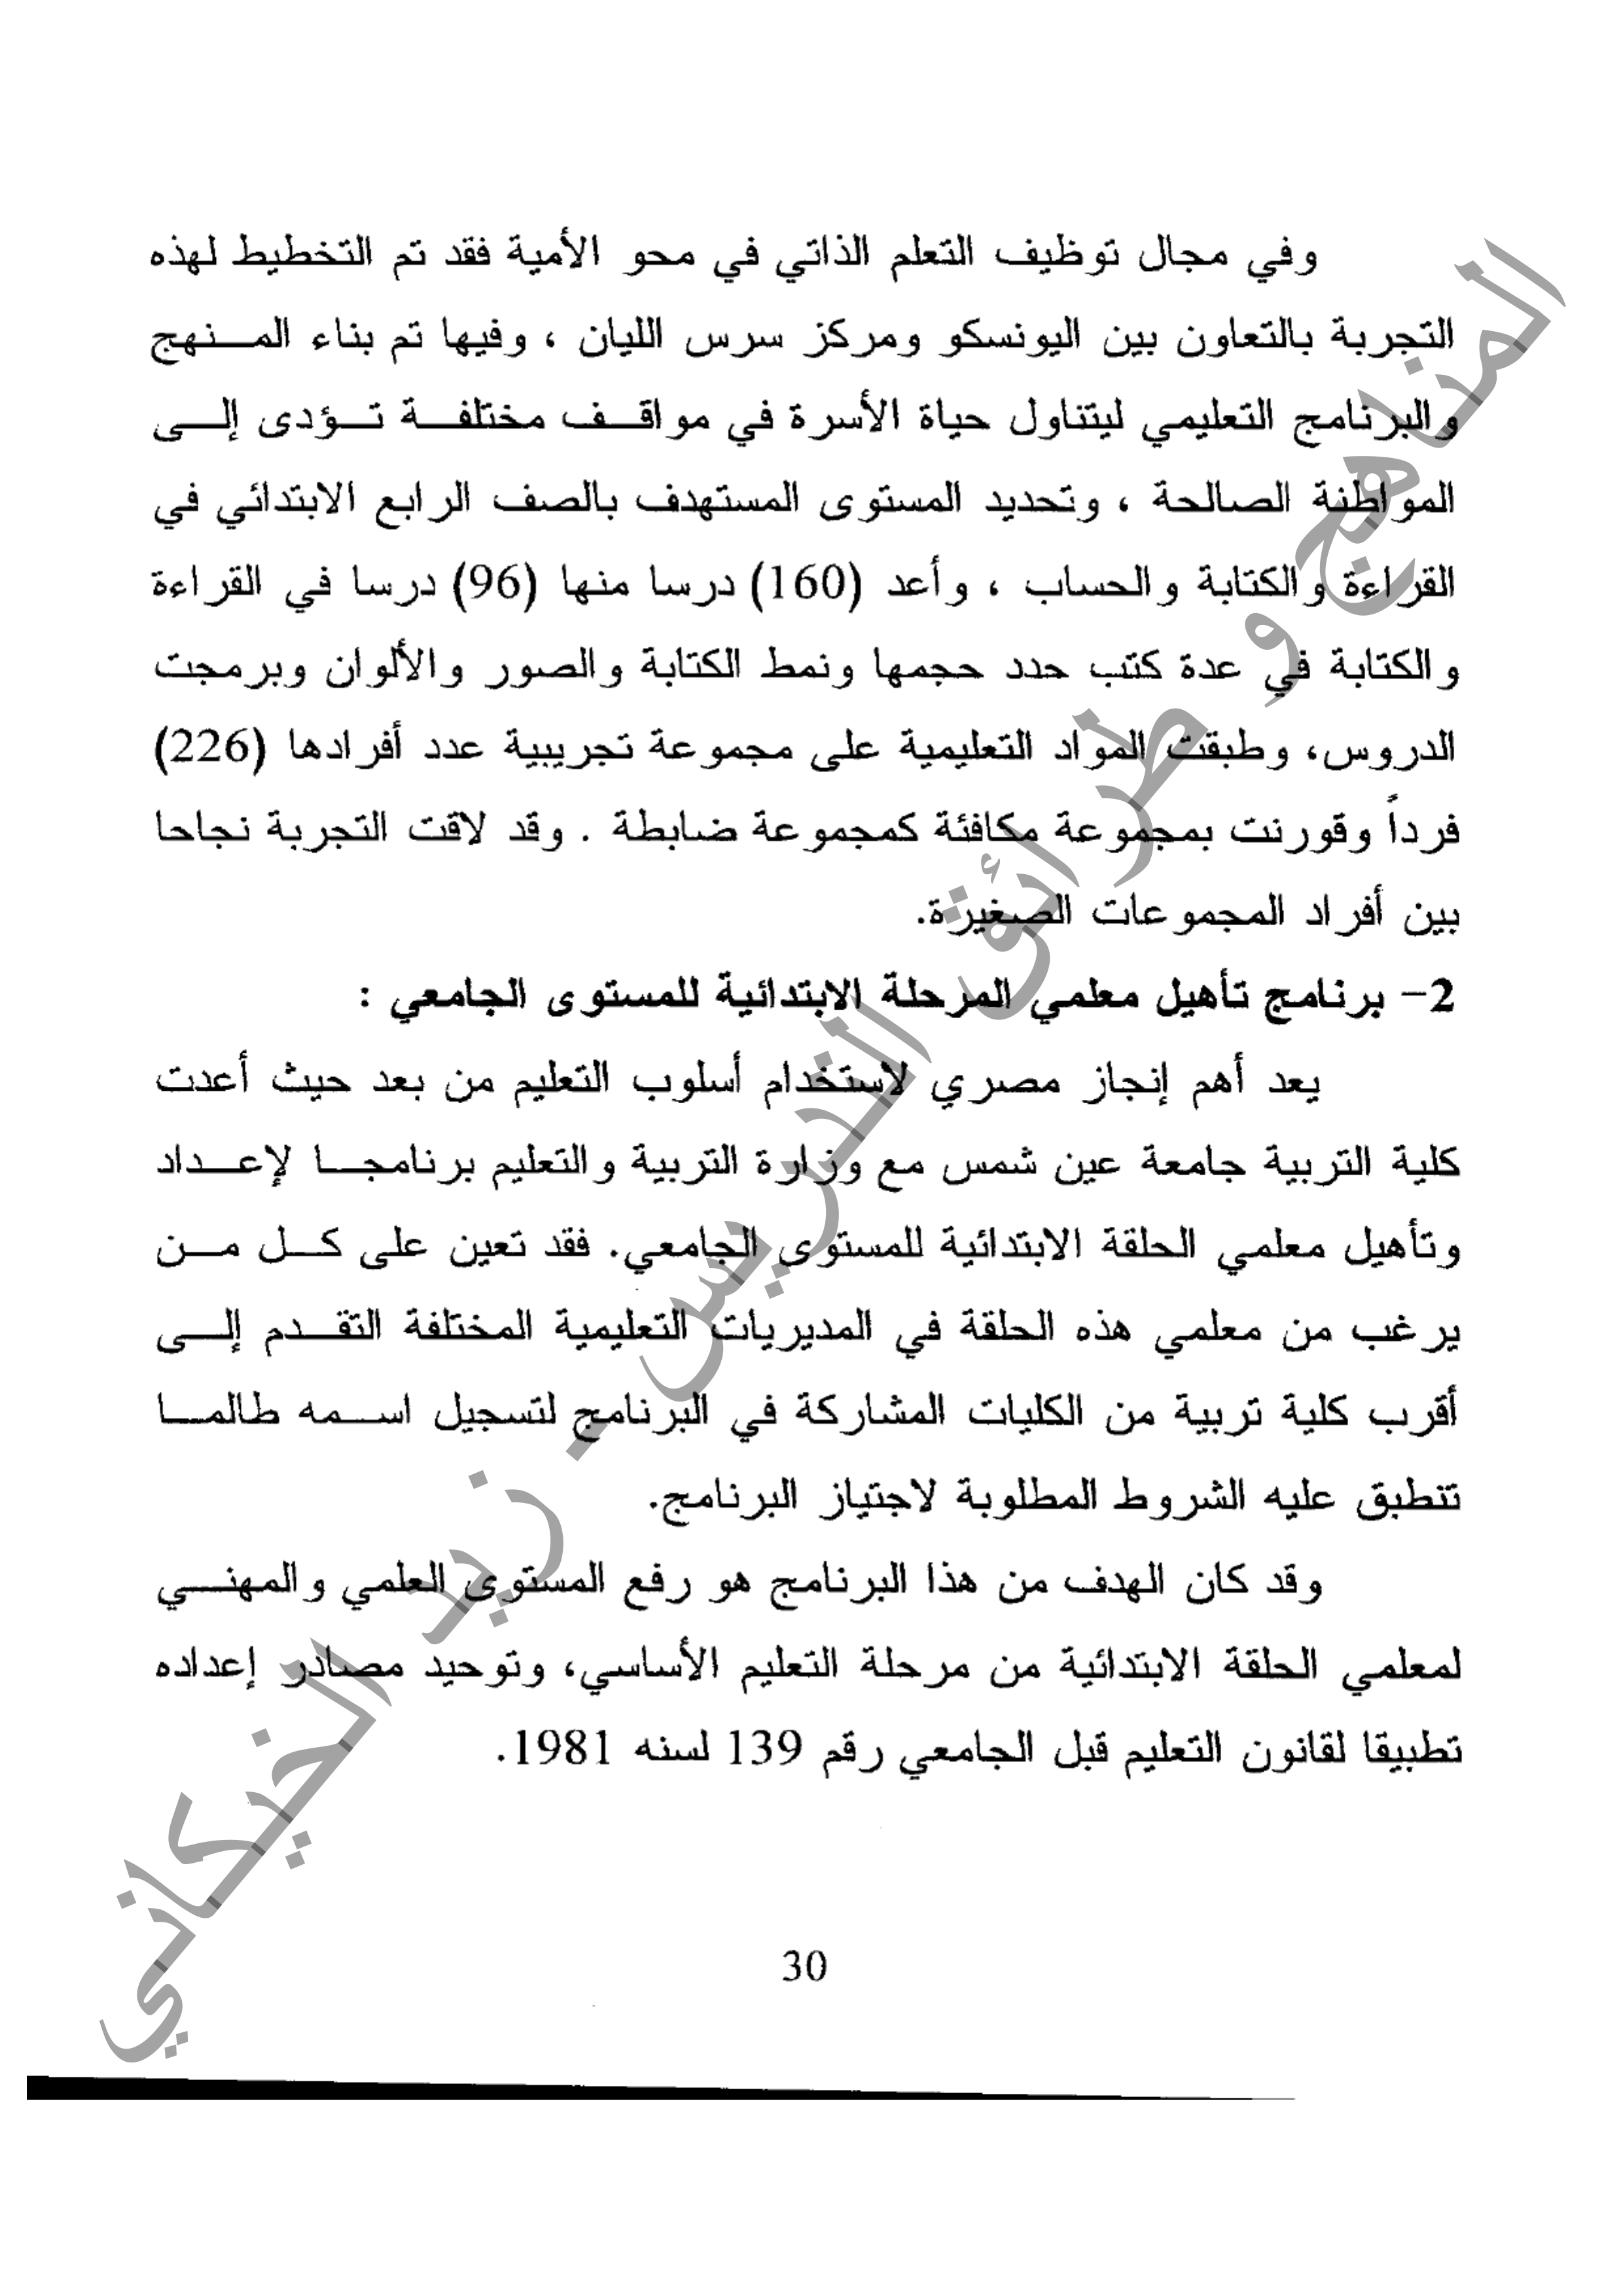 وفي مجال توظيف التعلم الذاتي في محو الأمية فقد تم التخطيط لهذه
التجربة بالتعاون بين اليونسكو ومركز سرس الليان ، وفيها تم بناء المنهج
والبرنامج التعليمي ليتناول حياة الأسرة في مواقف مختلفة تؤدى إلى
المواطنة الصالحة ، وتحديد المستوى المستهدف بالصف الرابع الابتدائي في
القراءة والكتابة والحساب ، وأعد (160) درسا منها (96) درسا في القراءة
والكتابة في عدة كتب حدد حجمها ونمط الكتابة والصور والألوان وبرمجت
الدروس، وطبقت المواد التعليمية على مجموعة تجريبية عدد أفرادها (226)
فرداً وقورنت بمجموعة مكافئة كمجموعة ضابطة . وقد لاقت التجربة نجاحا
بين أفراد المجموعات الصغيرة.
2- برنامج تأهيل معلمي المرحلة الابتدائية للمستوى الجامعي :
يعد أهم إنجاز مصري لاستخدام أسلوب التعليم من بعد حيث أعدت
كلية التربية جامعة عين شمس مع وزارة التربية والتعليم برنامجا لإعداد
وتأهيل معلمي الحلقة الابتدائية للمستوى الجامعي. فقد تعين على كل من
يرغب من معلمي هذه الحلقة في المديريات التعليمية المختلفة التقدم إلى
أقرب كلية تربية من الكليات المشاركة في البرنامج لتسجيل اسمه طالما
تنطبق عليه الشروط المطلوبة لاجتياز البرنامج.
وقد كان الهدف من هذا البرنامج هو رفع المستوى العلمي والمهني
لمعلمي الحلقة الابتدائية من مرحلة التعليم الأساسي، وتوحيد مصادر إعداده
تطبيقا لقانون التعليم قبل الجامعي رقم 139 لسنه 1981.
30
المناهج و طرائق التدريس - زيد الخيكاني